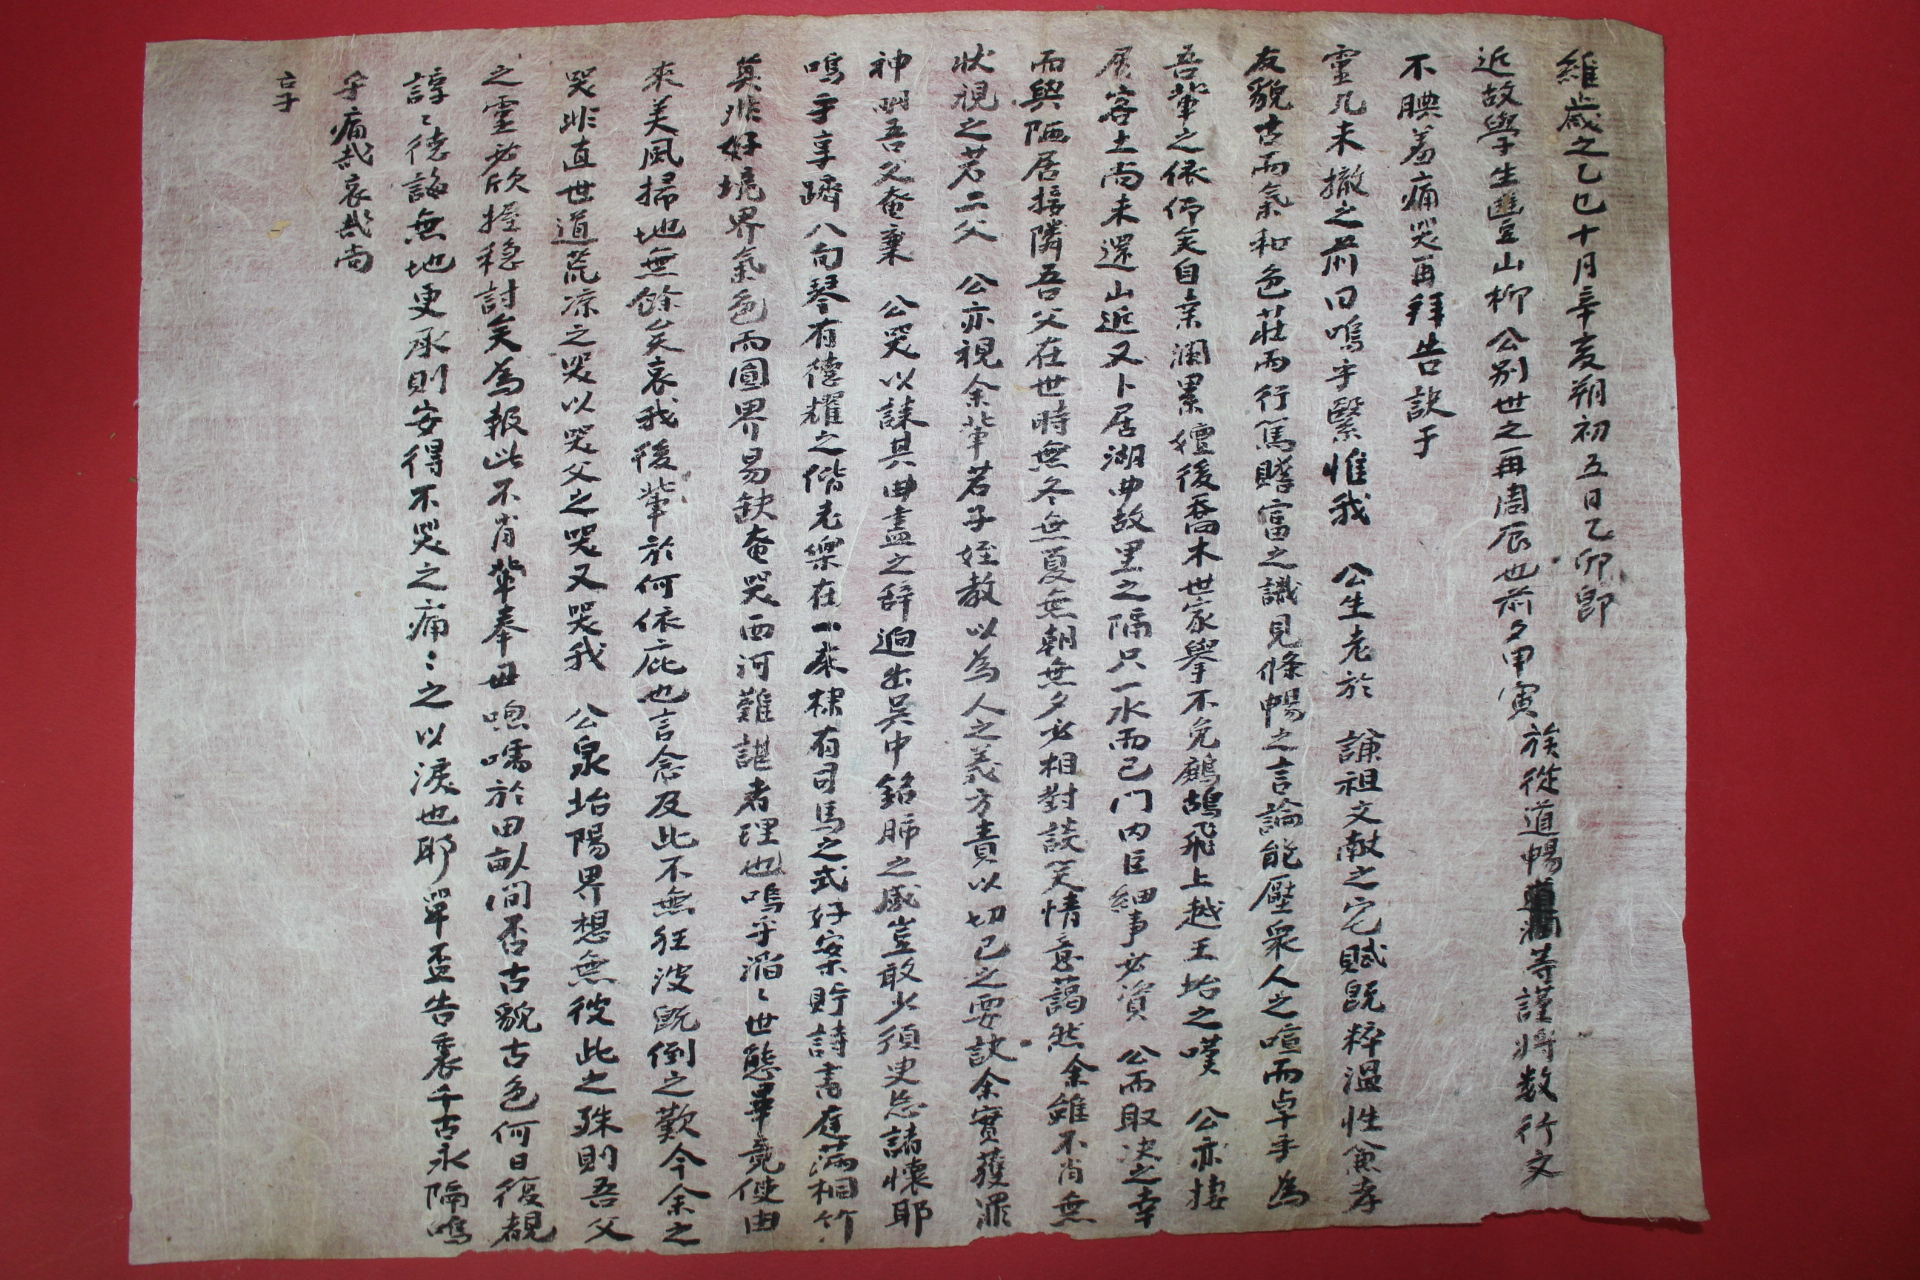 維歲之乙巳十月辛亥朔初五日乙卯卽
近故學生豊山柳 公別世之再周辰也前夕甲寅 族從道暢 等謹將數行文
不腆羞痛哭再拜告訣于
靈几未撤之前曰嗚乎緊惟我 公生老於 謙祖文獻之宅賦旣粹溫性兼孝
友貌古而氣和色莊而行篤贍富之識見條暢之言論能壓衆人之喧而卓乎為
吾輩之依仰矣自 瀾累嬗後喬木世家擧不免鷓鴣飛上越王坮之嘆 公亦捿
居客土尙未還山近又卜居湖曲故里之隔只一水而已門內巨細事必資 公而取決之幸
而與陋居接隣吾父在世時無冬無夏無朝無夕必相對談笑情意藹然余雖不肖無
狀視之若二父 公亦視余輩若子姪敎以為人之義方責以切己之要訣余實獲罪
神明吾父奄棄 公哭以誄其曲盡之辭迥出吳中銘肺之感豈敢少須臾忘諸懷耶
嗚乎享躋八旬琴有德耀之偕老樂在一床棣有司馬之式好案貯詩書庭滿桐竹
莫非好境界氣色而圓界易缺奄哭西河難諶者理也嗚乎滔〻世態畢竟使由
來美風掃地無餘矣哀我後輩於何依庇也言念及此不無狂波旣倒之歎今余之
哭非直世道荒凉之哭以哭父之哭又哭我 公泉坮陽界想無彼此之殊則吾父
之靈必欣握穩討矣為報此不肖輩奉毌 嚅於田畝間否古貌古色何日復覩
諄〻德誨無地更承則安得不哭之痛〻之以淚也耶單盃告衷千古永隔嗚
乎痛哉哀哉尙
享